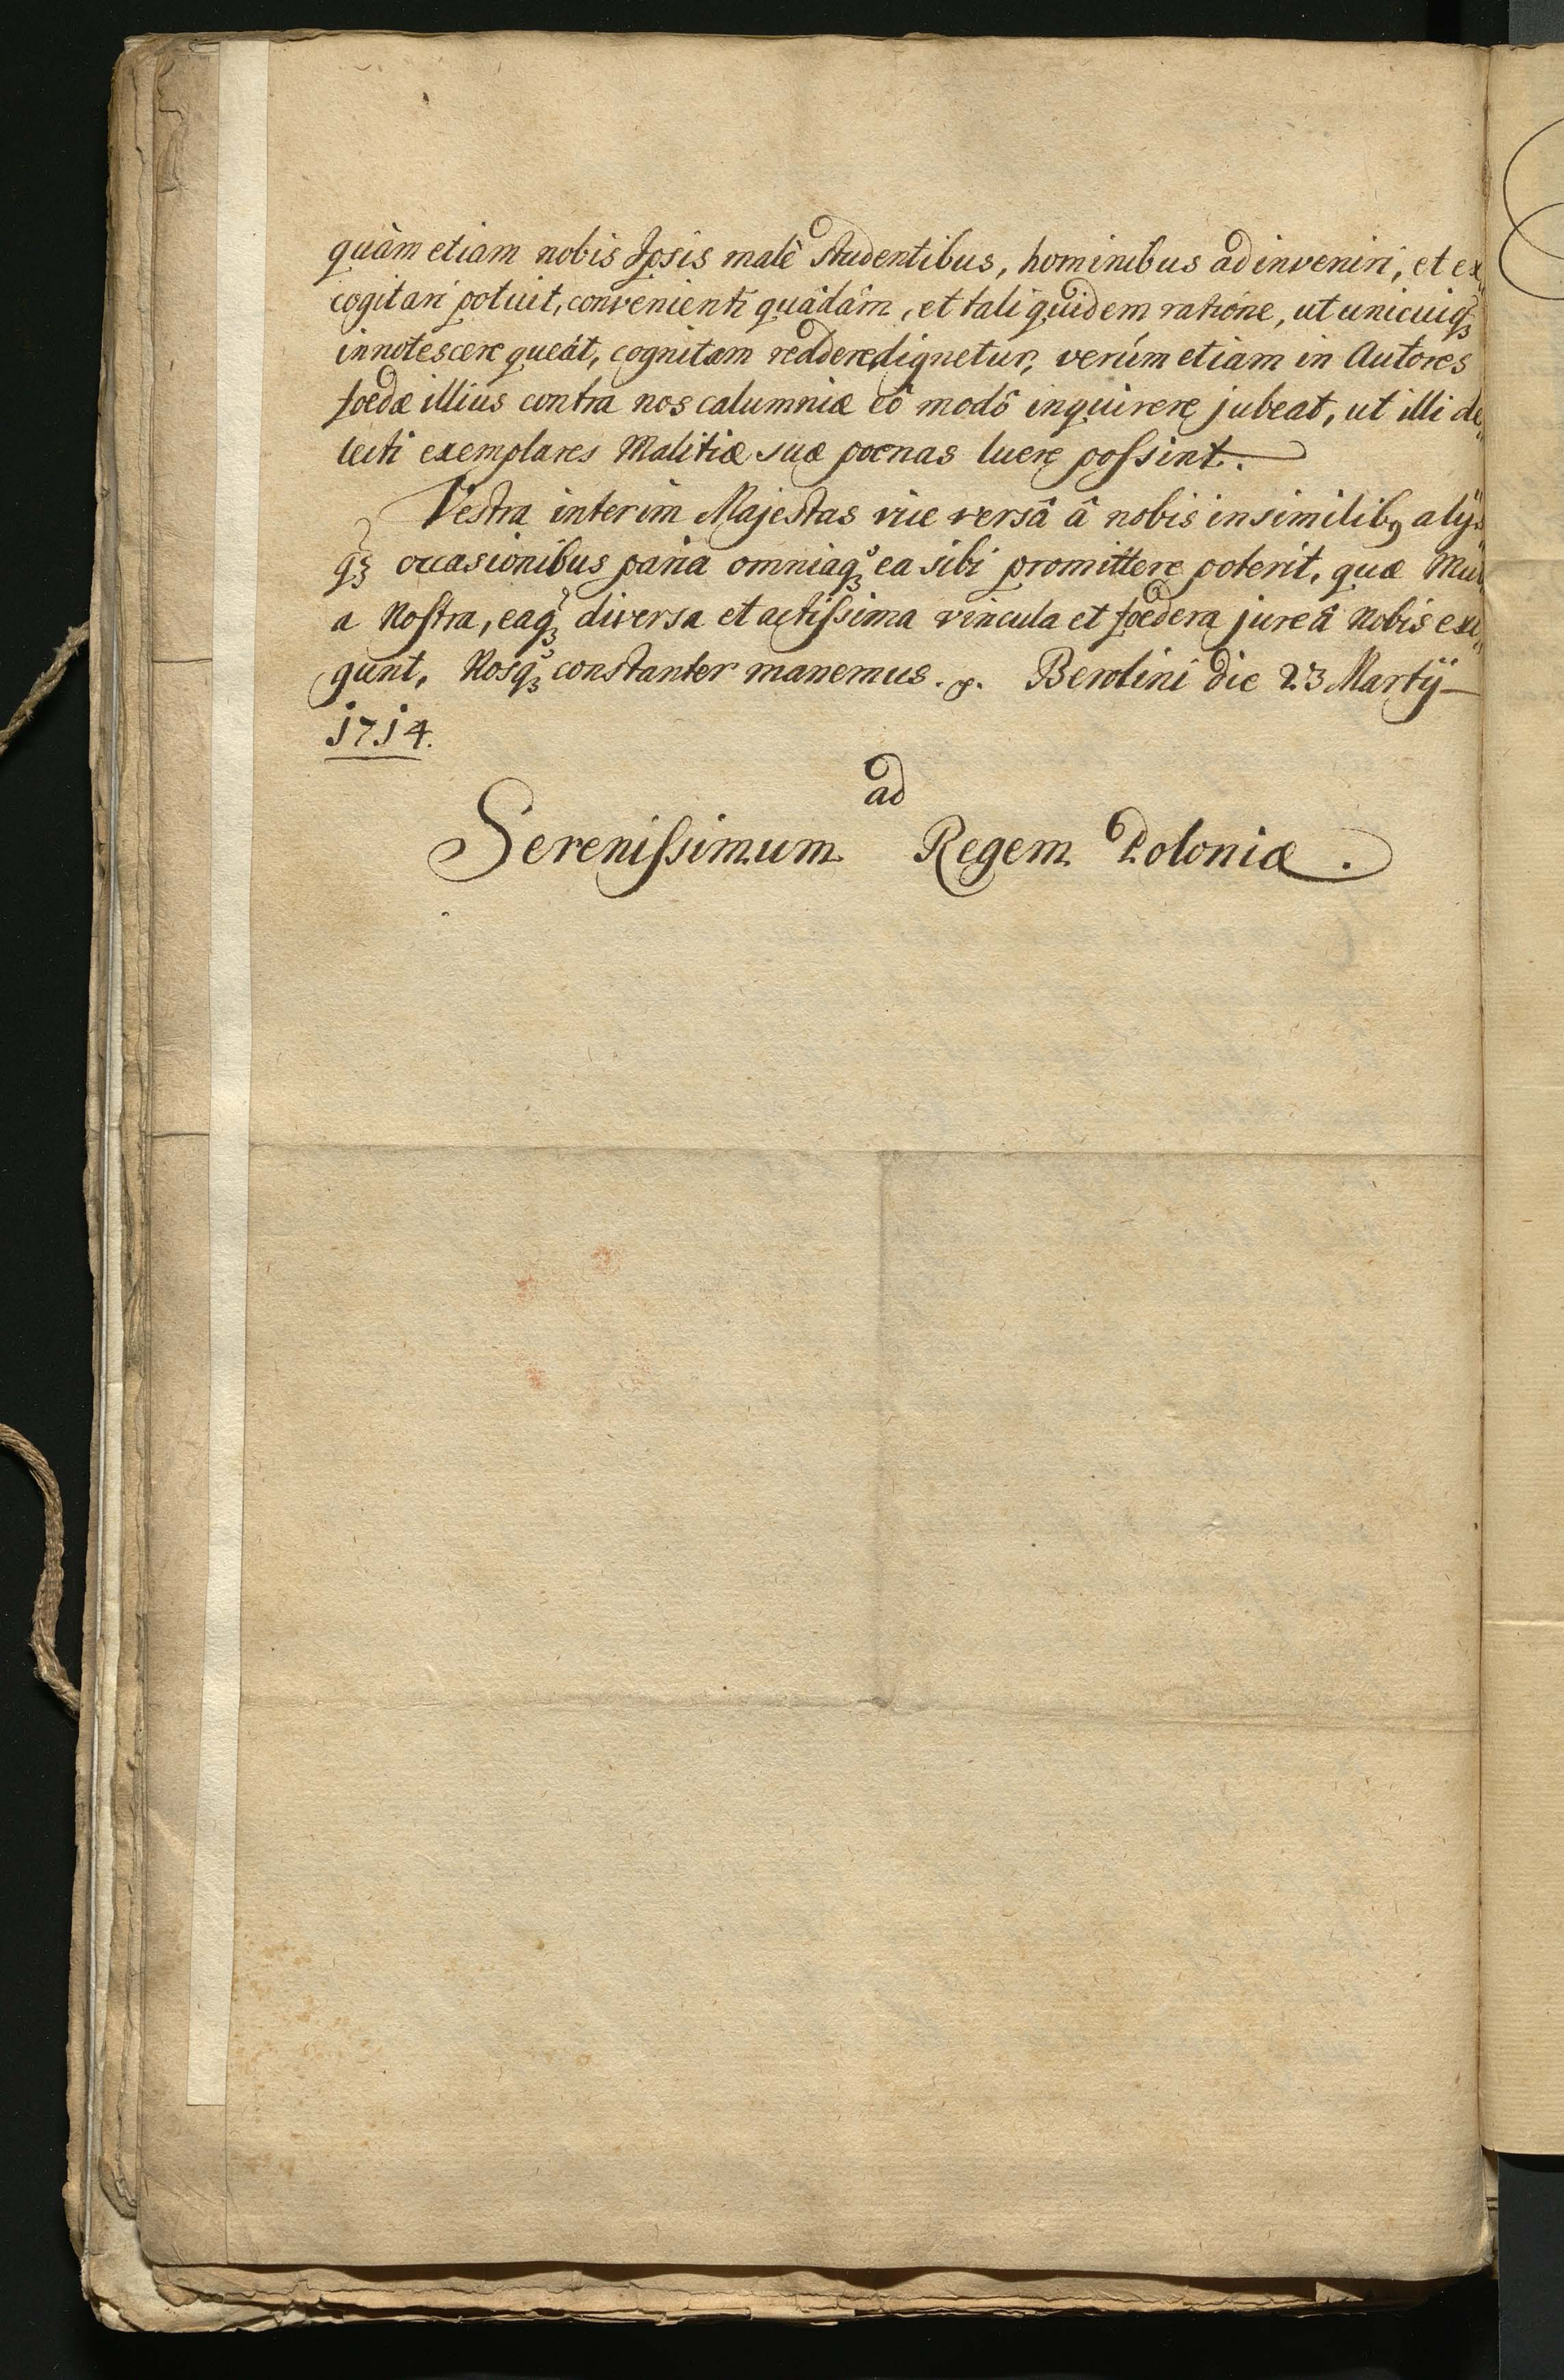 quàm etiam nobis Ipsis malè studentibus, hominibus adinveniri, et ex„
cogitari potuit, convenienti quâdâm, et tali quidem ratióne, ut unicuiqꝫ
innotescere queát, cognitam reddere dignetur, verúm etiam in Autores
foedæ illius contra nos calumniæ eô modô inquirere jubeat, ut illi de„
tecti exemplares Malitiæ suæ poenas luere poſsint.
Vestra interim Majestas vice versâ â nobis in similibꝯ alijs
qꝫ occasionibus paria omniaqꝫ ea sibi promittere poterit, quæ Mu
a Noſtra, eaqꝫ diversa et actiſsima vincula et foedera jure â Nobis exi„
gunt, Nosqꝫ constanter manemus. Berolini die 23 Martij
1714.
ad
Sereniſsimum Regem Poloniæ.